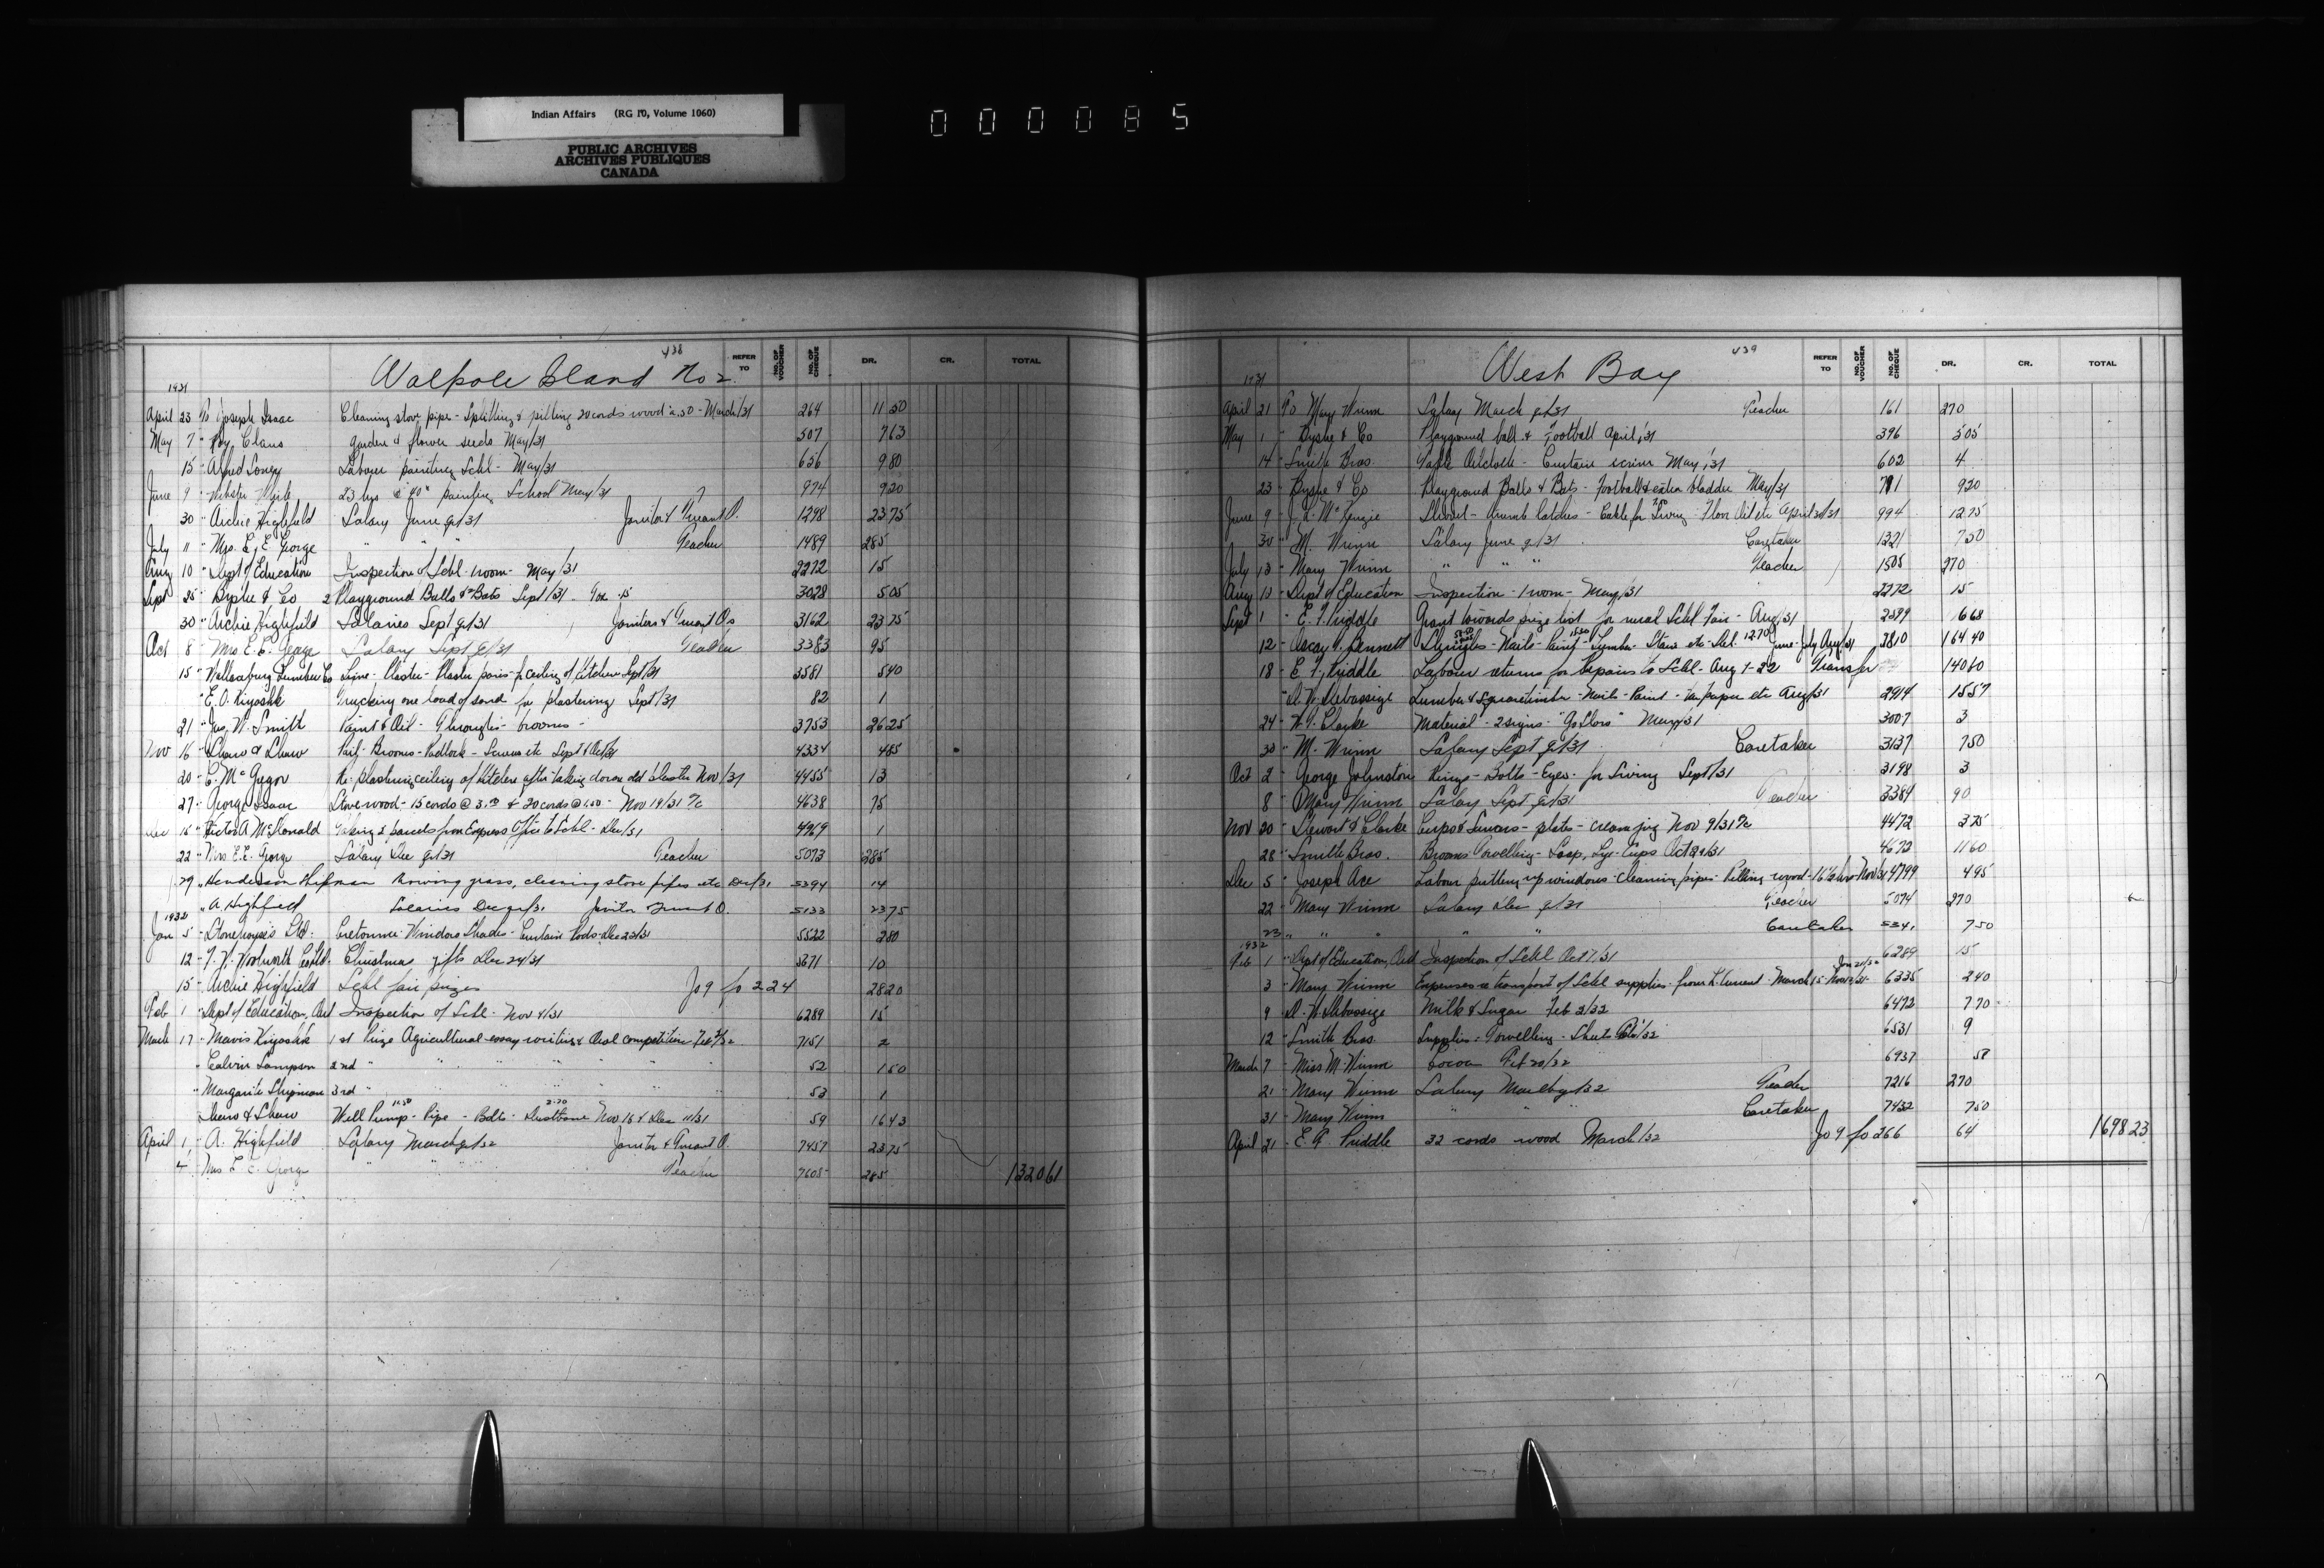 Indian Affairs (RG 10, Volume 1060)
PUBLIC ARCHIVES
ARCHIVES PUBLIQUES
CANADA
000085
438
Walpole Island No 2
REFER TO NO. OF VOUCHER NO. OF CHEQUE DR. CR. TOTAL
1931
April 23 To Joseph Isaac Cleaning stove pipe - Splitting & pilling 20 cords wood - March/31 264 11 50
May 7 " Roy Claus garden & flower seeds May/31 507 7 63
15 " Alfred Soney Labour painting Schl - May/31 656 9 80
June 9 " 23 hrs @ 40" painting School May/31 974 9 20
30 " Archie Highfield Salary June qr/31 Janitor & Truant O. 1298 23 75
July 11 " Mrs. E. E. George " " " Teacher 1489 285
Aug 10 " Dept of Education Inspection of Schl - 1 room - May/31 2272 15
Sept 25 " Bryshe & Co 2 Playground Balls & Bats Sept/31 3028 5 05
30 " Archie Highfield Salaries Sept qr/31 Janitors & Truant Os 3162 23 75
Oct 8 " Mrs E. E. George Salary Sept qr/31 Teacher 3383 95
15 " Wallaceburg Lumber Co Lime - Plaster - Plaster paris - for ceiling of kitchen Sept/31 3581 5 40
" E. O. Kiyoshk Trucking one load of sand for plastering Sept/31 82 1
21 " Jno. W. Smith Paint & Oil - brooms - 3753 26 25
Nov 16 " Shaw & Shaw Pail - Brooms - Padlock - Screws etc Sept & Oct/31 4334 4 85
20 " C. McGregor Re-plastering ceiling of kitchen after taking down old plaster Nov/31 4455 13
27 " George Isaac Stove wood - 15 cords @ 3.00 & 20 cords @ 1.50 - Nov 19/31 4638 75
Dec 16 " Victor A McDonald Taking 2 parcels from Express Office to Schl - Dec/31 4969 1
22 " Mrs E.E. George Salary Dec qr/31 Teacher 5073 285
29 " Henderson Shipman Mowing grass, cleaning stove pipes etc Dec/31 5294 14
" A Highfield Salaries Dec qr/31 Janitor Truant O. 5133 23 75
1932
Jan 5 " Stonehouse's Ltd. Cretonne - Window Shades - Curtain Rods - Dec 23/31 5522 2 80
12 " F. W. Woolworth Co Ltd. Christmas gifts Dec 24/31 5671 10
15 " Archie Highfield Schl fair prizes Jo 9 fo 224 28 20
Feb 1 " Dept of Education, Ont Inspection of Schl - Nov 4/31 6289 15
March 17 " Mavis Kiyoshk 1st Prize Agricultural essay writing & Oral competition Feb 7151 2
" Calvin Sampson 2nd " " " " " " 52 1 50
" Margarite Shipman 3rd " " " " " " 53 1
Shaw & Shaw Well Pump - Pipe - Bolts - Nov 18 & Dec 11/31 59 16 43
April 1 " A. Highfield Salary March qr/32 Janitor & Truant O. 7457 23 75
4 " Mrs E E. George " " " Teacher 7605 285 1320 61
439
West Bay
REFER TO NO. OF VOUCHER NO. OF CHEQUE DR. CR. TOTAL
1931
April 21 To Mary Winn Salary March qr/31 Teacher 161 270
May 1 " Bryshe & Co Playground ball & Football April/31 396 5 05
14 " Smith Bros. Table Oilcloth - Curtain scrim May/31 602 4
23 " Bryshe & Co Playground Balls & Bats - Football & extra bladder May/31 711 9 20
June 9 " McKenzie Shovel - thumb latches - Cable for Swing - Floor Oil etc April 30/31 994 12 75
30 " M. Winn Salary June qr/31 Caretaker 1321 7 50
July 13 " Mary Winn " " " Teacher 1505 270
Aug 10 " Dept of Education Inspection - 1 room - May/31 2272 15
Sept 1 " E. F. Priddle Grant towards prize list for rural Schl Fair - Aug/31 2599 6 68
12 " Bennett Shingles - Nails - Paint - Lumber - Stain etc - June - July Aug/31 2810 164 40
18 " E. F. Priddle Labour returns for Repairs to Schl - Aug 1-22 Transfer 140 60
D. W. Debassige Lumber & Square timber - Nails - Paint - tar paper etc Aug/31 2914 15 57
24 " Clarke Material - 2 signs - "Go Slow" May/31 3007 3
30 " M. Winn Salary Sept qr/31 Caretaker 3137 7 50
Oct 2 " George Johnston Rings - Bolts - Eyes - for Swing Sept/31 3198 3
8 " Mary Winn Salary Sept qr/31 Teacher 3384 90
Nov 20 " Stewart & Clarke Cups & Saucers - plates - cream jug Nov 9/31 4472 3 75
28 " Smith Bros. Brooms - Towelling - Soap, Lye - Cups Oct 29/31 4672 11 60
Dec 5 " Joseph Ace Labour putting up windows - cleaning pipes - Pilling wood - Nov/31 4799 4 95
22 " Mary Winn Salary Dec qr/31 Teacher 5074 270
23 " " " " " Caretaker 534 7 50
1932
Feb 1 " Dept of Education, Ont Inspection of Schl Oct 7/31 6289 15
3 " Mary Winn Expenses re transport of Schl supplies - from L. Current - March 15 6335 2 40
9 " D. W. Debassige Milk & Sugar Feb 3/32 6472 7 70
12 " Smith Bros. Supplies - Towelling - 6531 9
March 7 " Miss M. Winn Cocoa Feb 20/32 6937 58
21 " Mary Winn Salary March qr/32 Teacher 7216 270
31 " Mary Winn " " " Caretaker 7432 7 50
April 21 " E. F. Priddle 32 cords wood March/32 Jo 9 fo 266 64 1698 23